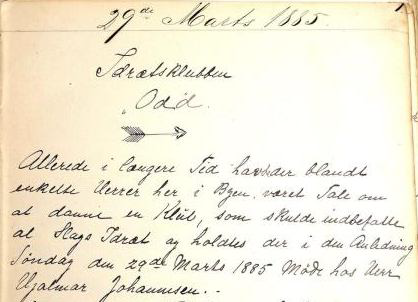 29de Marts 1885.
Idrætsklubben
"Odd.
Allerede i længere Tid har der blandt
enkelte Herrer her i Byen, været Tale om
at danne en Klub, som skulde indbefatte
al Slags Idræt og holdtes der i den Anledning
Søndag den 29de Marts 1885 Møde hos Herr
Hjalmar Johannesen. -